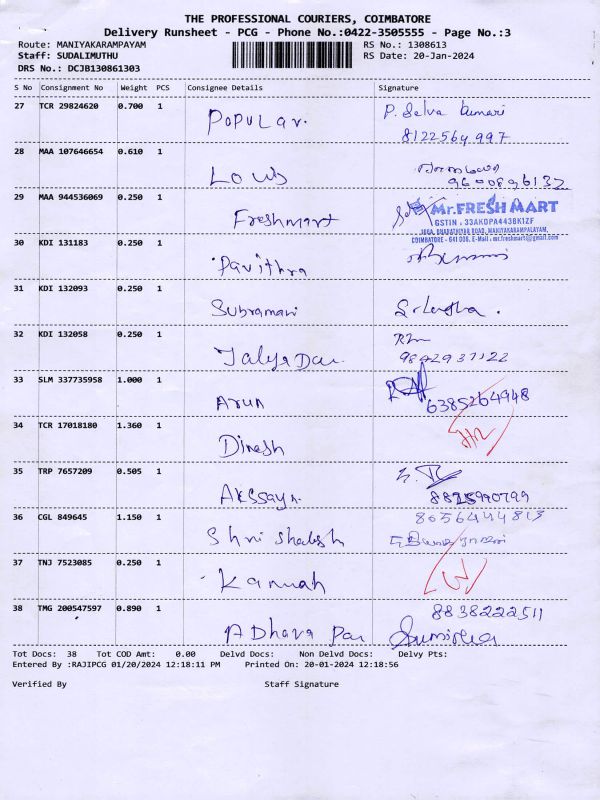 THE PROFESSIONAL COURIERS, COIMBATORE
Delivery Runsheet - PCG - Phone No.:0422-3505555 - Page No.:3
Route: MANIYAKARAMPAYAM RS No.: 1308613
Staff: SUDALIMUTHU RS Date: 20-Jan-2024
DRS No.: DCJB130861303
S No Consignment No Weight PCS Consignee Details Signature
27 TCR 29824620 0.700 1 Popular. P. Selva kumari
8122564997
28 MAA 107646654 0.610 1
9600896132
29 MAA 944536069 0.250 1 Freshmart Mr.FRESH MART
GSTIN : 33AKDPA4438K1ZF
166A, BHARATHIYAR ROAD, MANIYAKARAMPALAYAM,
COIMBATORE - 641 006. E-Mail : mr.freshmart@gmail.com
30 KDI 131183 0.250 1 Pavithra
31 KDI 132093 0.250 1 Subramani
32 KDI 132058 0.250 1
9842937122
33 SLM 337735958 1.000 1 Arun 6385264948
34 TCR 17018180 1.360 1 Dinesh
35 TRP 7657209 0.505 1 Akssaya.
8825990799
36 CGL 849645 1.150 1 Shri 8056444813
37 TNJ 7523085 0.250 1 Kannah
38 TMG 200547597 0.890 1 ADhava 8838222511
Tot Docs: 38 Tot COD Amt: 0.00 Delvd Docs: Non Delvd Docs: Delvy Pts:
Entered By :RAJIPCG 01/20/2024 12:18:11 PM Printed On: 20-01-2024 12:18:56
Verified By Staff Signature